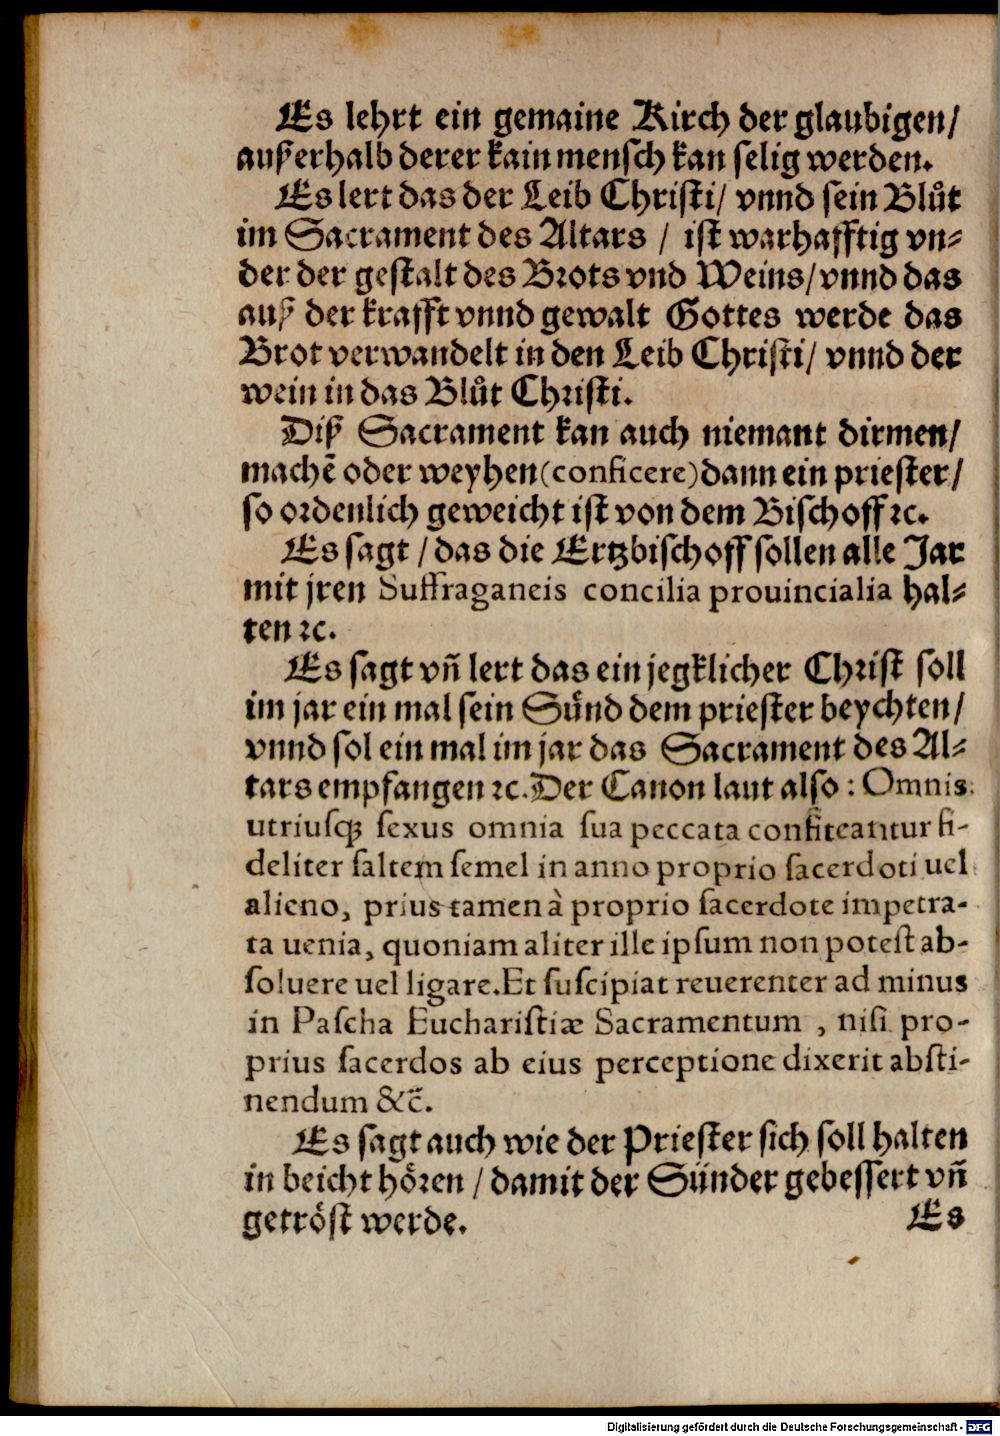 Es lehrt ein gemaine Kirch der glaubigen/
auſſerhalb derer kain menſch kan ſelig werden.
Es lert das der Leib Chriſti/ vnnd ſein Blůt
im Sacrament des Altars / iſt warhafftig vn⸗
der der geſtalt des Brots vnd Weins/ vnnd das
auß der krafft vnnd gewalt Gottes werde das
Brot verwandelt in den Leib Chriſti/ vnnd der
wein in das Blůt Chriſti.
Diß Sacrament kan auch niemant dirmen/
machē oder weyhen (conficere) dann ein prieſter/
ſo ordenlich geweicht iſt von dem Biſchoff ꝛc.
Es ſagt / das die Ertzbiſchoff ſollen alle Jar
mit jren Suffraganeis concilia prouincialia hal⸗
ten ꝛc.
Es ſagt vn̄ lert das ein jegklicher Chriſt ſoll
im jar ein mal ſein Sünd dem prieſter beychten/
vnnd ſol ein mal im jar das Sacrament des Al⸗
tars empfangen ꝛc. Der Canon laut alſo : Omnis
utriuſq; ſexus omnia ſua peccata confiteantur fi-
deliter ſaltem ſemel in anno proprio ſacerdoti uel
alieno, prius tamen à proprio ſacerdote impetra-
ta uenia, quoniam aliter ille ipſum non poteſt ab-
ſoluere uel ligare. Et ſuſcipiat reuerenter ad minus
in Paſcha Euchariſtiæ Sacramentum , niſi pro-
prius ſacerdos ab eius perceptione dixerit abſti-
nendum &c̄.
Es ſagt auch wie der Prieſter ſich ſoll halten
in beicht hören / damit der Sünder gebeſſert vn̄
getröſt werde.
Es
Digitalisierung gefördert durch die Deutsche Forschungsgemeinschaft - DFG